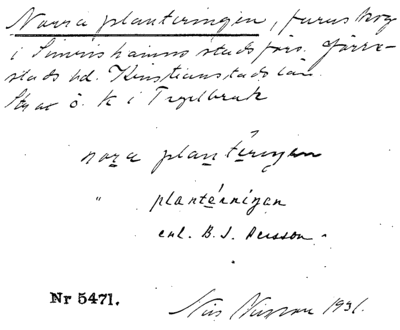 Norra planteringen, furuskog
i Simrishamns stads förs. Järre-
stads hd. Kristianstads län.
Str ac ö. k i Tegelbruk
nora planteringen
" planténnigan
enl. B. J. Persson.
Nr 5471.
Nils Nilsson 1931.